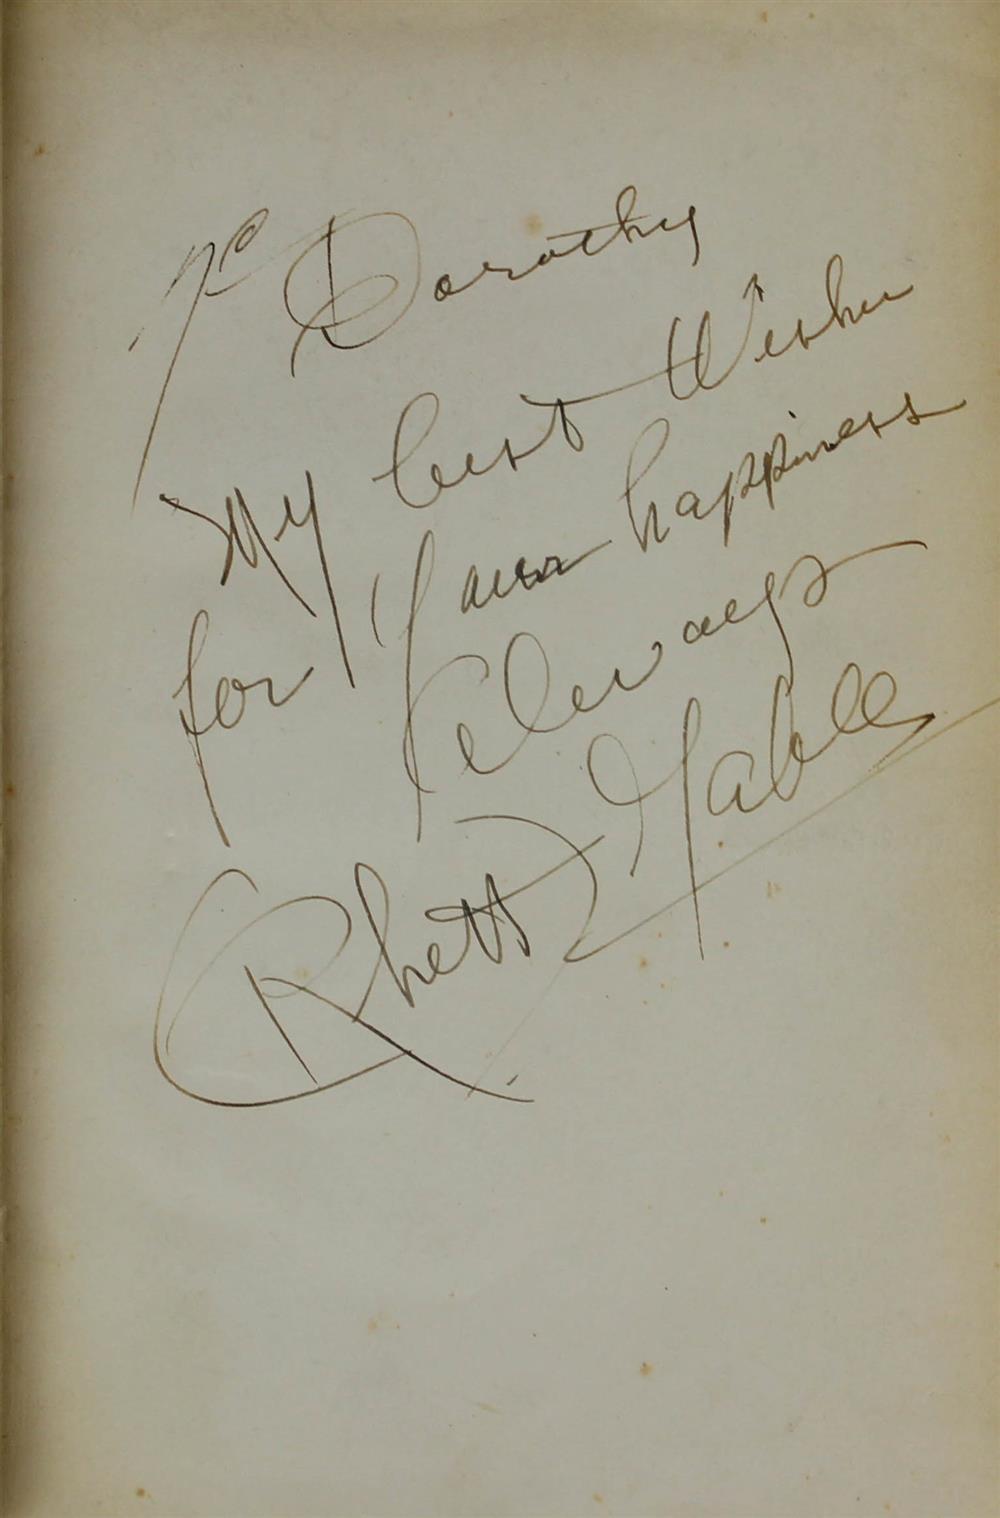 To Dorothy
My best Wishes
for Your happiness
Always
Rhett Gable